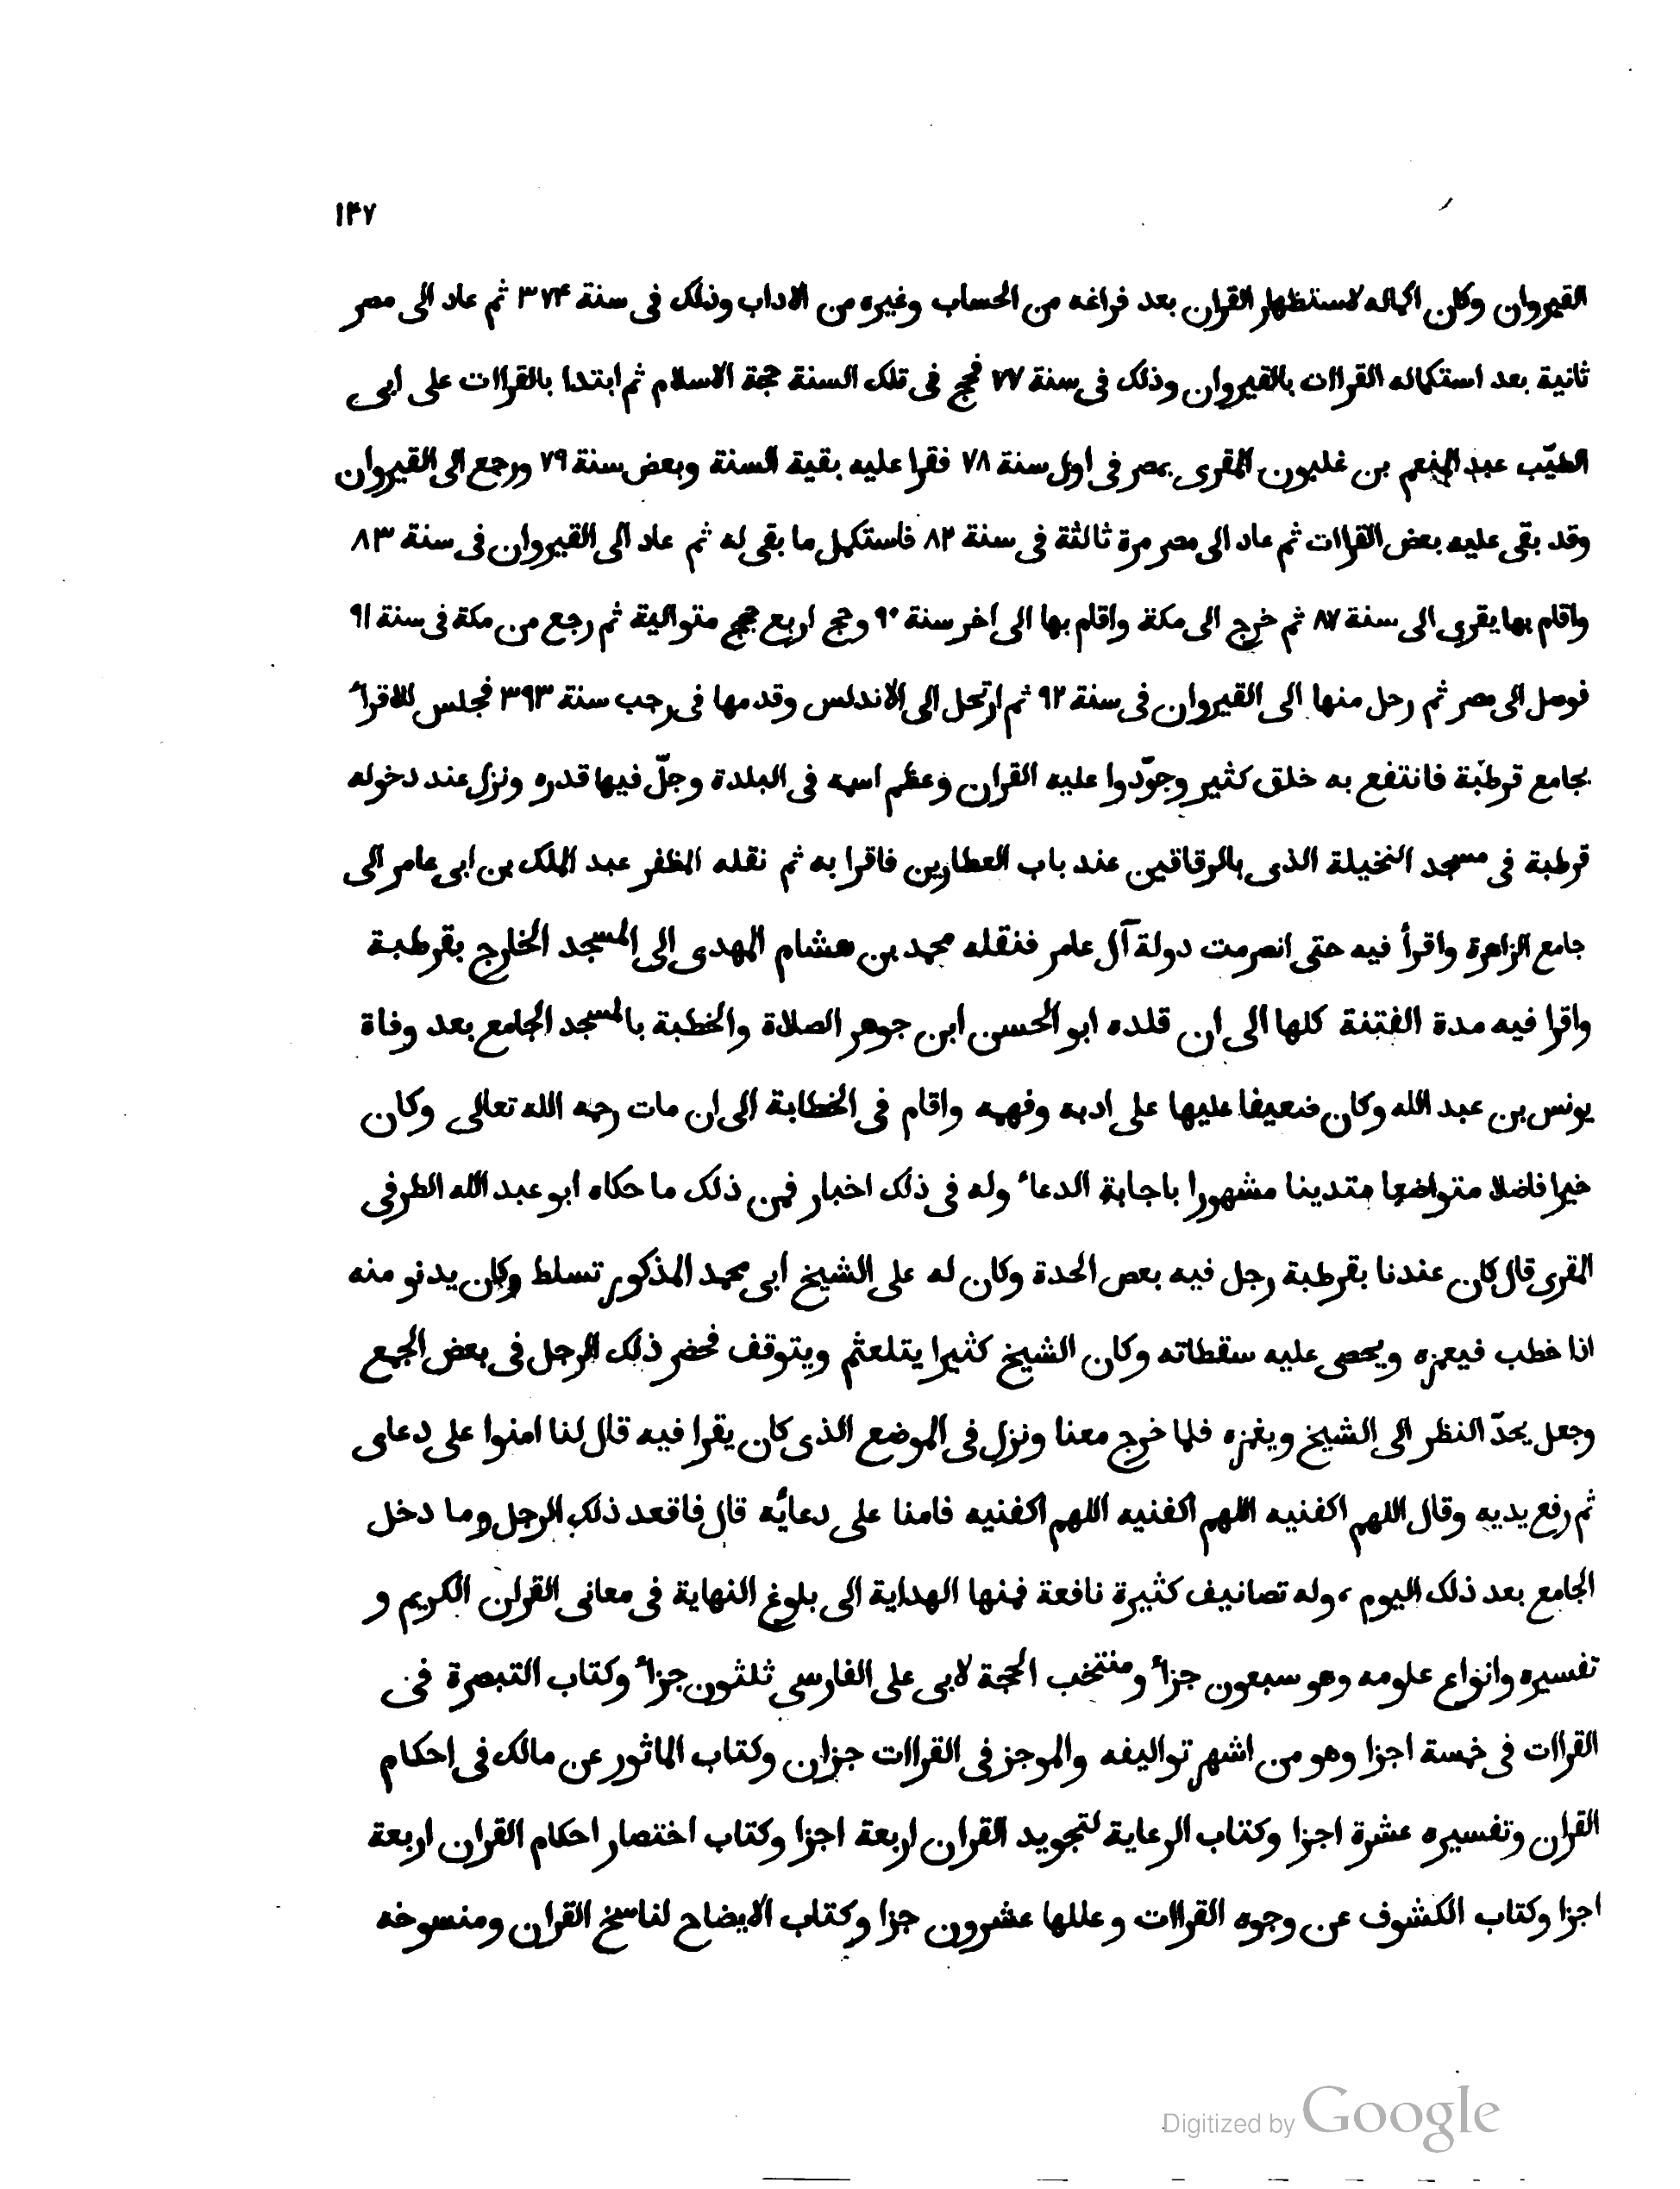 ١٤٧
القيروان وكان اكماله لاستظهار القران بعد فراغه من الحساب وغيره من الاداب وذلك فى سنة ٣٧٤ ثم عاد الى مصر
ثانية بعد استكماله القراات بالقيروان وذلك فى سنة ٧٧ فحج فى تلك السنة حجة الاسلام ثم ابتدا بالقراات على ابى
الطيّب عبد المنعم بن غلبون المقرى بمصر فى اول سنة ٧٨ فقرا عليه بقية السنة وبعض سنة ٧٩ ورجع الى القيروان
وقد بقى عليه بعض القراات ثم عاد الى مصر مرة ثالثة فى سنة ٨٢ فاستكمل ما بقى له ثم عاد الى القيروان فى سنة ٨٣
واقام بها يقرى الى سنة ٨٧ ثم خرج الى مكة واقام بها الى اخر سنة ٩٠ وحج اربع حجج متوالية ثم رجع من مكة فى سنة ٩١
فوصل الى مصر ثم رحل منها الى القيروان فى سنة ٩٢ ثم ارتحل الى الاندلس وقدمها فى رجب سنة ٣٩٣ فجلس للاقراء
بجامع قرطبة فانتفع به خلق كثير وجوّدوا عليه القران وعظم اسمه فى البلدة وجلّ فيها قدره ونزل عند دخوله
قرطبة فى مسجد النخيلة الذى بالرقاقين عند باب العطارين فاقرا به ثم نقله المظفر عبد الملك بن ابى عامر الى
جامع الزاهرة واقرأ فيه حتى انصرمت دولة آل عامر فنقله محمد بن هشام المهدى الى المسجد الخارج بقرطبة
واقرا فيه مدة الفتنة كلها الى ان قلده ابو الحسن ابن جوهر الصلاة والخطبة بالمسجد الجامع بعد وفاة
يونس بن عبد الله وكان ضعيفا عليها على ادبه وفهمه واقام فى الخطابة الى ان مات رحمه الله تعالى وكان
خيرا فاضلا متواضعا متدينا مشهورا باجابة الدعاء وله فى ذلك اخبار فمن ذلك ما حكاه ابو عبد الله الطرفى
المقرى قال كان عندنا بقرطبة رجل فيه بعض الحدة وكان له على الشيخ ابى محمد المذكور تسلط وكان يدنو منه
اذا خطب فيغمزه ويحصى عليه سقطاته وكان الشيخ كثيرا يتلعثم ويتوقف فحضر ذلك الرجل فى بعض الجمع
وجعل يحدّ النظر الى الشيخ ويغمزه فلما خرج معنا ونزل فى الموضع الذى كان يقرا فيه قال لنا امنوا على دعاى
ثم رفع يديه وقال اللهم اكفنيه اللهم اكفنيه اللهم اكفنيه فامنا على دعائه قال فاقعد ذلك الرجل وما دخل
الجامع بعد ذلك اليوم، وله تصانيف كثيرة نافعة فمنها الهداية الى بلوغ النهاية فى معانى القران الكريم و
تفسيره وانواع علومه وهو سبعون جزاء ومنتخب الحجة لابى على الفارسى ثلثون جزاء وكتاب التبصرة فى
القراات فى خمسة اجزا وهو من اشهر تواليفه والموجز فى القراات جزان وكتاب الماثور عن مالك فى احكام
القران وتفسيره عشرة اجزا وكتاب الرعاية لتجويد القران اربعة اجزا وكتاب اختصار احكام القران اربعة
اجزا وكتاب الكشوف عن وجوه القراات وعللها عشرون جزا وكتاب الايضاح لناسخ القران ومنسوخه
Digitized by Google